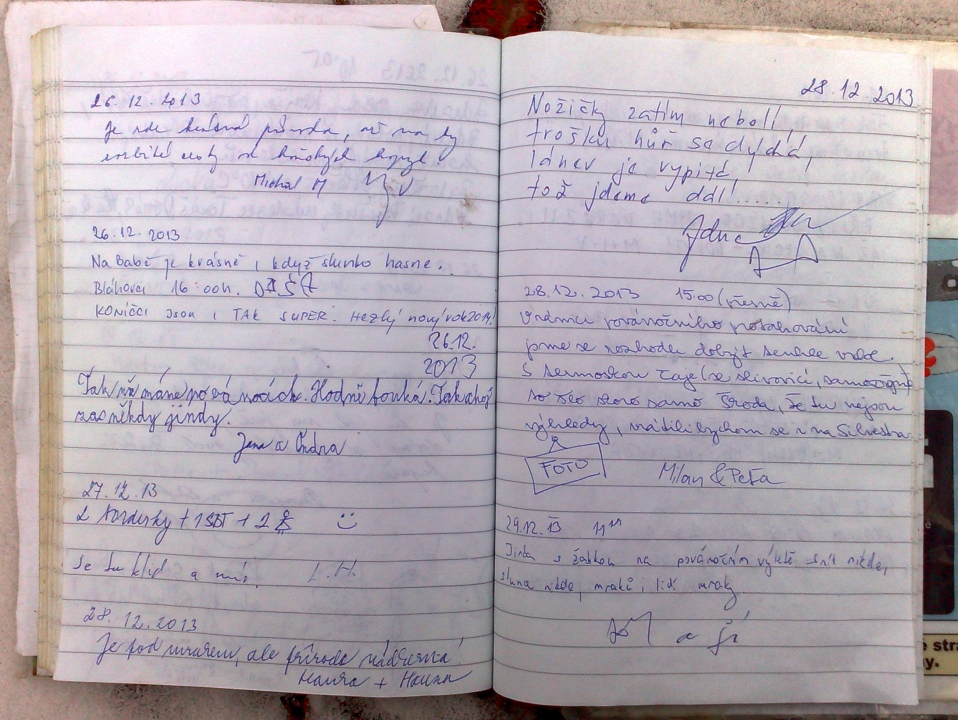 26.12.2013
Je zde krásná příroda, až na ty
rozbité cesty od
Michal M
26.12.2013
Na Babě je krásně i když slunko hasne..
Bláhovci 16:00h.
KONÍČCI JSOU I TAK SUPER. HEZKÝ nový rok 2014!
26.12.
2013
Tak už máme po vánocích. Hodně fouká. Tak ahoj
zas někdy jindy.
Jana a Ondra
27.12.13
2 Norderky + 1 + 2
Je tu klid a mír. L.H.
28.12.2013
Je pod mrakem, ale příroda nádherná!
Hanka + Honza
28.12.2013
Nožičky zatím nebolí
trošku hůř se dýchá,
lánev je vypitá
tož jdeme dál!.....
28.12.2013 15:00 (přesně)
V rámci povánočního
jsme se rozhodli dobýt
S termoskou čaje (se slivovicí, samozřejmě)
to šlo skoro samo. Škoda, že tu nejsou
výhledy, vrátili bychom se i na Silvestra
FOTO
Milan & Peťa
29.12.13 11
Jirka s Žabkou na povánočním výletě, sníh nikde,
slunce nikde, mraků, lidí mraky
a